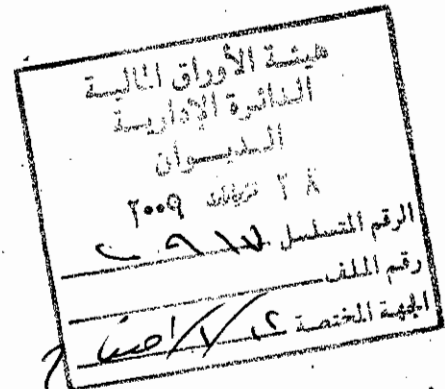 هيئة الأوراق المالية
الدائرة الإدارية
الديوان
٢٨ نيسان ٢٠٠٩
الرقم المتسلسل
رقم الملف
الجهة المختصة